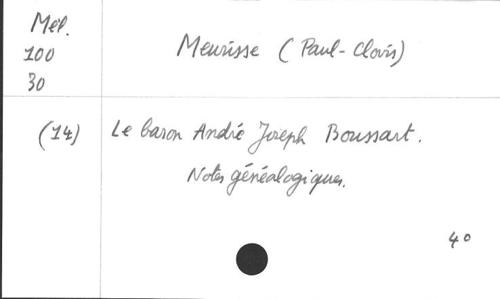 Mél.
100
30
Meurisse (Paul-Clovis)
(14)
Le baron André Joseph Boussart.
Notes généalogiques.
4°